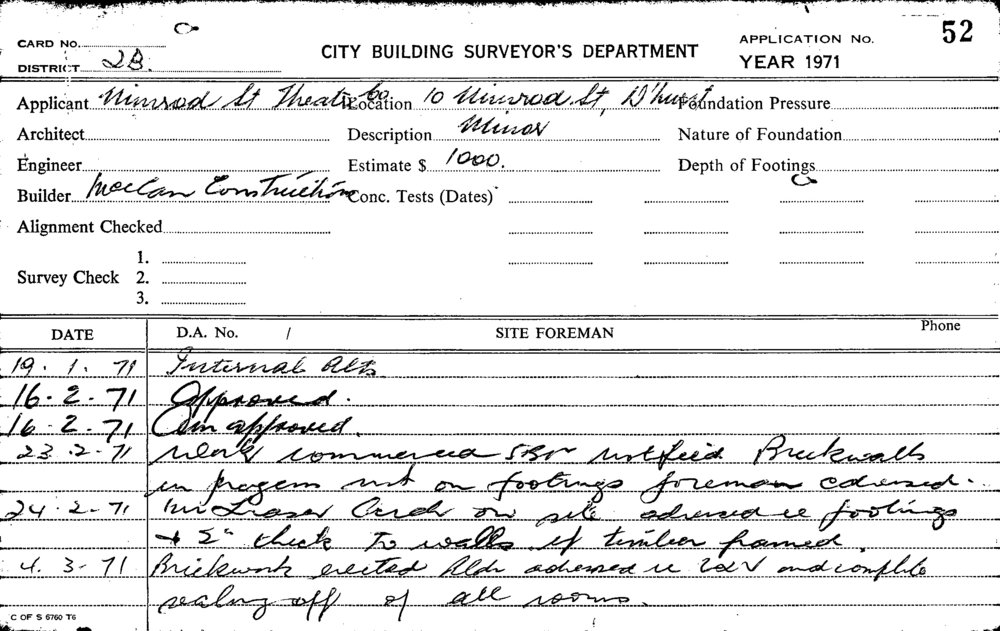 52
CARD No.
CITY BUILDING SURVEYOR'S DEPARTMENT
APPLICATION No.
DISTRICT 2B.
YEAR 1971
Applicant Nimrod St Theatre Co Location 10 Nimrod St, D'hurst Foundation Pressure
Architect Description Minor Nature of Foundation
Engineer Estimate $ 1000. Depth of Footings
Builder McCan Construction Conc. Tests (Dates)
Alignment Checked
1.
Survey Check 2.
3.
DATE D.A. No. / SITE FOREMAN Phone
19.1.71 Internal Alts
16.2.71 Approved.
16.2.71 approved.
23.2.71 Work commenced notified Brickwalls
in progress not on footings foreman advised.
24.2.71 Mr Fraser on site advised re footings
+ 2" check to walls if timber framed.
4.3.71 Brickwork erected Bldr advised re and complete
sealing off of all rooms.
C OF S 6760 T6